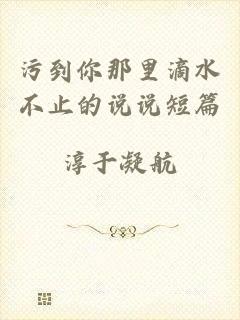 污到你那里滴水
不止的说说短篇
淳于凝航